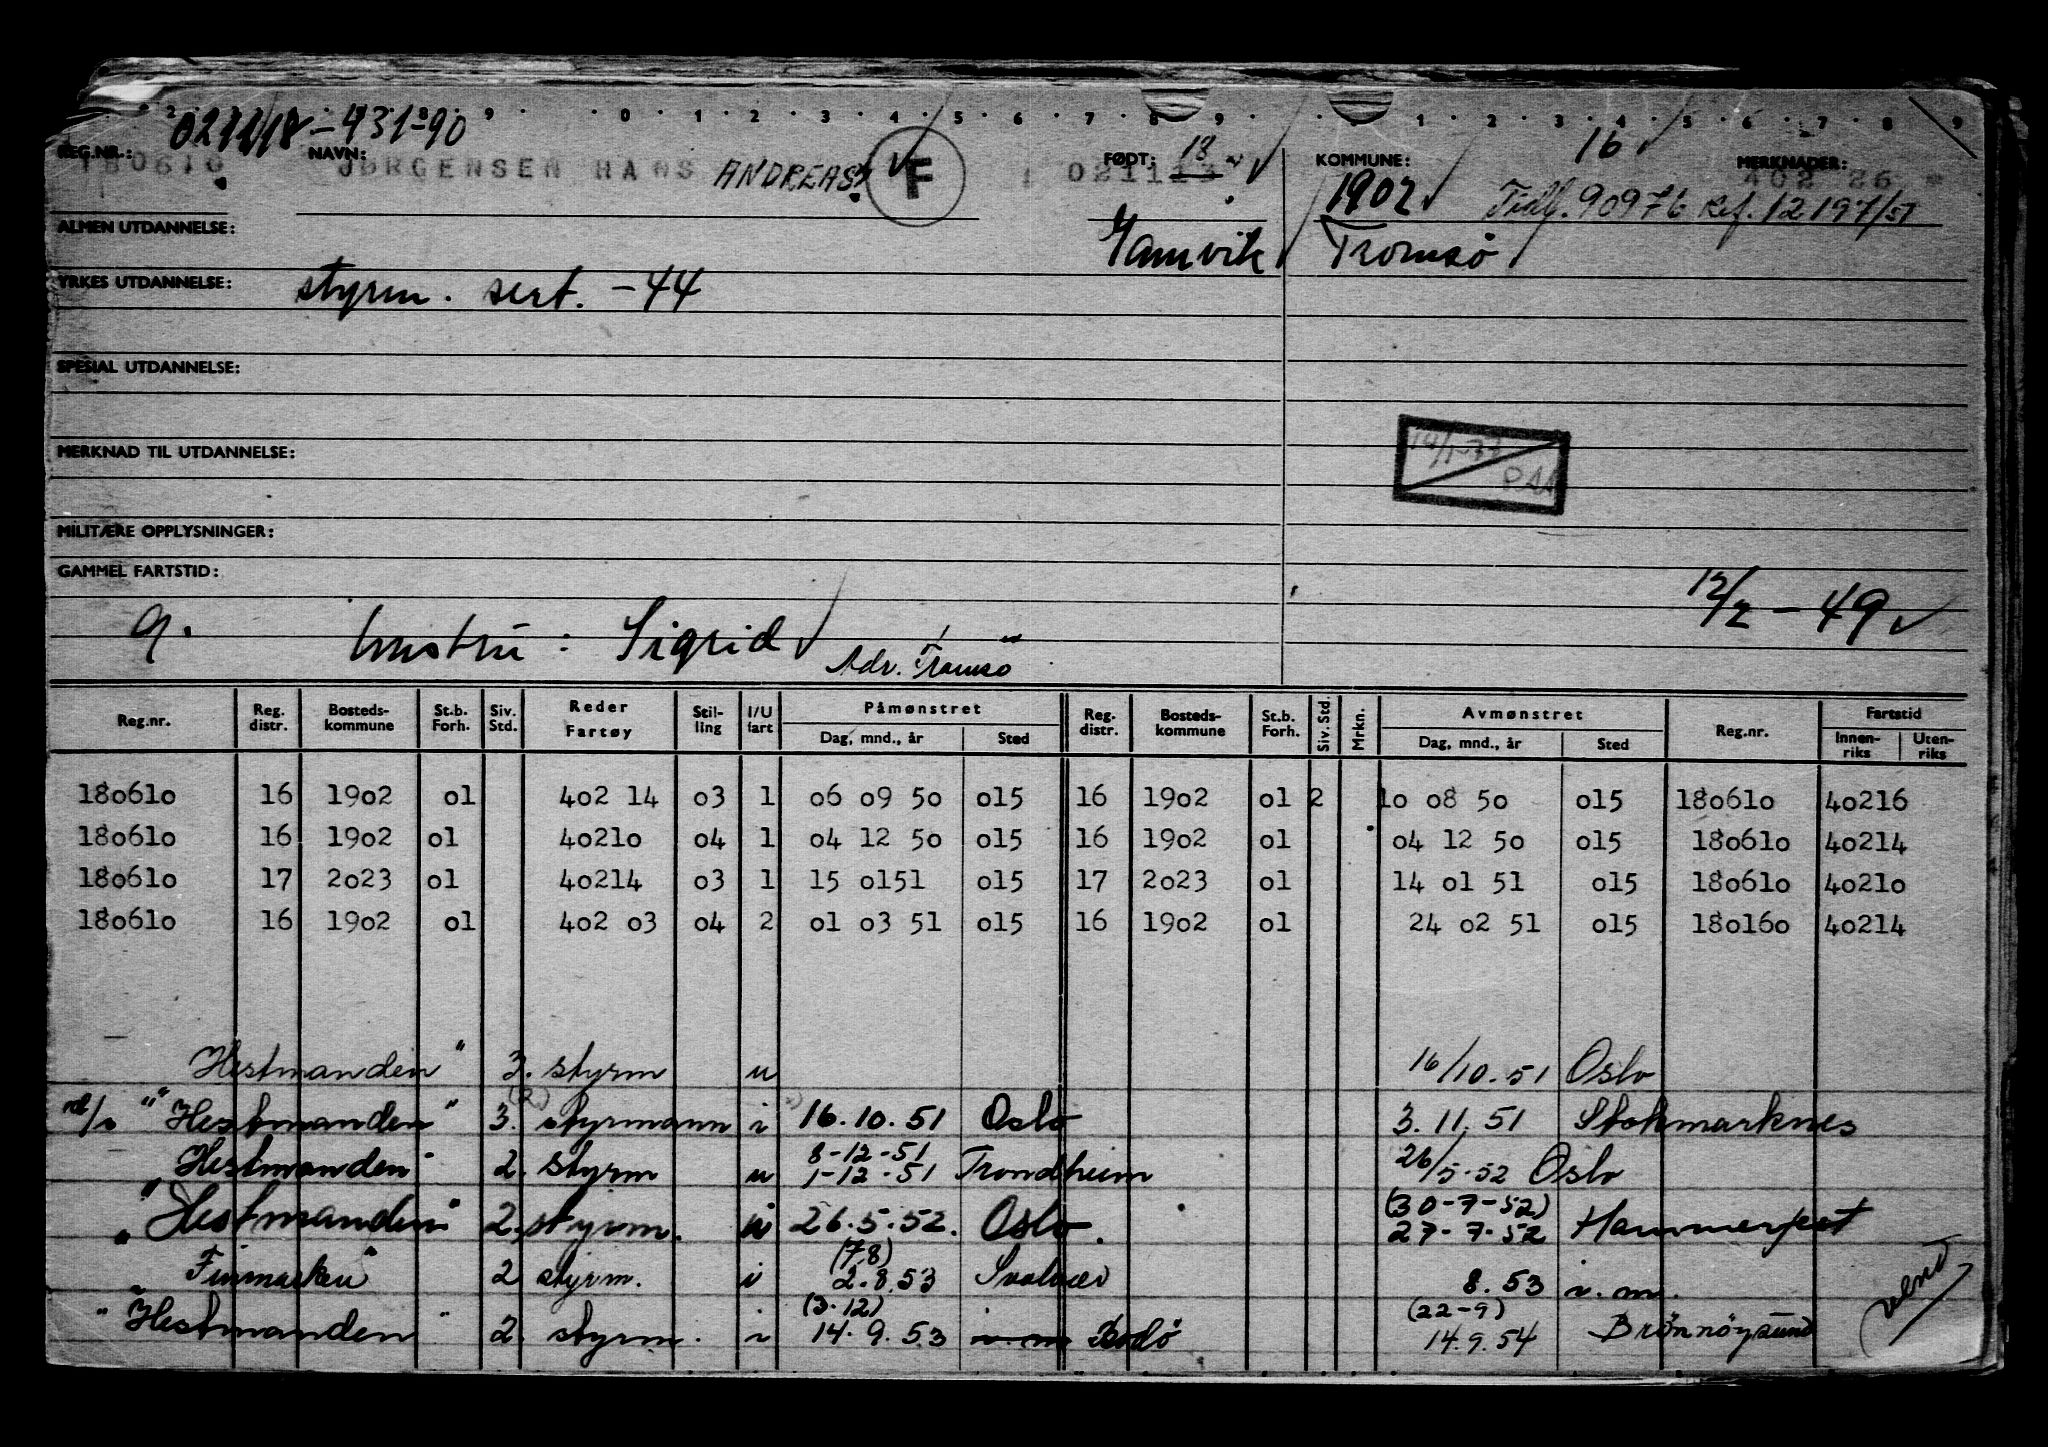 021118-43190
REG.NR.: 180610 NAVN: JØRGENSEN HANS ANDREAS F FØDT: 18 021113 KOMMUNE: 16 MERKNADER: 402 26
1902 90976 Ref. 12197/51
ALMEN UTDANNELSE: Gamvik Tromsø
YRKES UTDANNELSE: styrm. sert. -44
SPESIAL UTDANNELSE:
MERKNAD TIL UTDANNELSE:
MILITÆRE OPPLYSNINGER:
GAMMEL FARTSTID:
12/2 - 49
g. hustru: Sigrid Adr. Tromsø
Reg.nr. Reg. distr. Bosteds-kommune St.b. Forh. Siv. Std. Reder Fartøy Stil-ling I/U fart Påmønstret Dag, mnd., år Sted Reg. distr. Bosteds-kommune St.b. Forh. Siv. Std. Mrkn. Avmønstret Dag, mnd., år Sted Reg.nr. Fartstid Innen-riks Uten-riks
180610 16 1902 01 402 14 03 1 06 09 50 015 16 1902 01 2 10 08 50 015 180610 40216
180610 16 1902 01 40210 04 1 04 12 50 015 16 1902 01 04 12 50 015 180610 40214
180610 17 2023 01 40214 03 1 15 0151 015 17 2023 01 14 01 51 015 180610 40210
180610 16 1902 01 402 03 04 2 01 03 51 015 16 1902 01 24 02 51 015 180160 40214
Hestmanden" 3. styrm u 16/10.51 Oslo
"Hestmanden" 3. (2) styrmann i 16.10.51 Oslo 3.11.51 Stokmarknes
8-12-51
Hestmanden" 2. styrm u 1-12-51 Trondheim 26/5-52 Oslo
(30-7-52)
"Hestmanden" 2. styrm. 26.5.52. Oslo. 27-7-52 Hammerfest
(7.8)
"Finmarken" 2 styrm. i 2.8.53 Svolvær 8.53 i.m.
(3.12) (22-9)
"Hestmanden" 2. styrm. i 14.9.53 i.m Bodø 14.9.54 Brønnøysund
vend